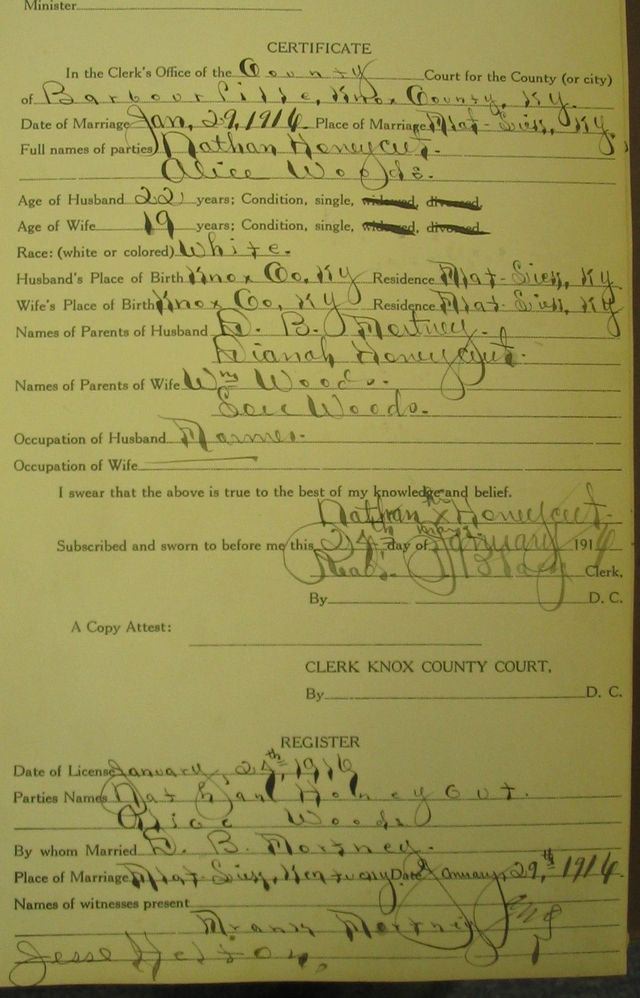 Minister
CERTIFICATE
In the Clerk's Office of the County Court for the County (or city)
of Barbourville, Knox County, Ky.
Date of Marriage Jan, 29, 1916 Place of Marriage Flat-Lick, Ky.
Full names of parties Nathan Honeycut.
Alice Woods.
Age of Husband 22 years; Condition, single, widowed, divorced
Age of Wife 19 years; Condition, single, widowed, divorced
Race: (white or colored) White.
Husband's Place of Birth Knox Co, Ky Residence Flat-Lick, Ky
Wife's Place of Birth Knox Co, Ky Residence Flat-Lick, Ky
Names of Parents of Husband B.
Dianah Honeycut.
Names of Parents of Wife Wm Woods.
Woods.
Occupation of Husband Farmer.
Occupation of Wife
I swear that the above is true to the best of my knowledge and belief.
Nathan his x mark Honeycut.
Subscribed and sworn to before me this 24th day of January 1916
Read. Clerk,
By D. C.
A Copy Attest:
CLERK KNOX COUNTY COURT,
By D. C.
REGISTER
Date of License January, 24th, 1916
Parties Names Nathan Honeycut.
Alice Woods
By whom Married B.
Place of Marriage Flat-Lick, Kentucky Date January, 29,th 1916.
Names of witnesses present
Frank
Jesse